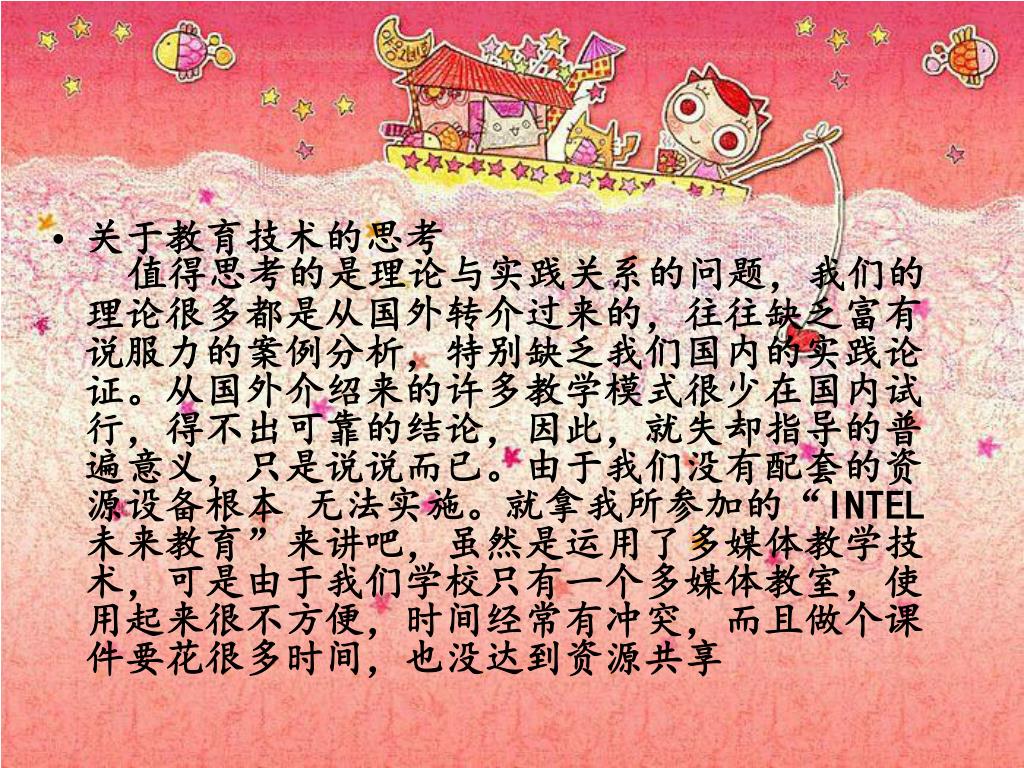 • 关于教育技术的思考
值得思考的是理论与实践关系的问题，我们的
理论很多都是从国外转介过来的，往往缺乏富有
说服力的案例分析，特别缺乏我们国内的实践论
证。从国外介绍来的许多教学模式很少在国内试
行，得不出可靠的结论，因此，就失却指导的普
遍意义，只是说说而已。由于我们没有配套的资
源设备根本 无法实施。就拿我所参加的“INTEL
未来教育”来讲吧，虽然是运用了多媒体教学技
术，可是由于我们学校只有一个多媒体教室，使
用起来很不方便，时间经常有冲突，而且做个课
件要花很多时间，也没达到资源共享